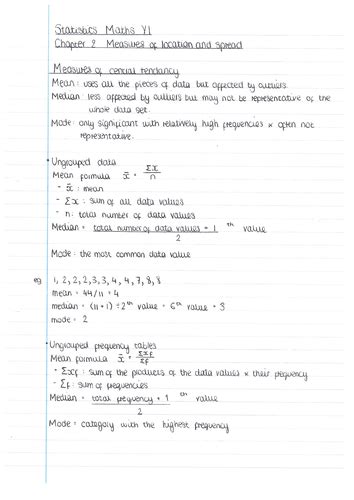 Statistics Maths Y1
Chapter 2 Measures of location and spread
Measures of central tendancy
Mean: uses all the pieces of data but affected by outliers.
Median: less affected by outliers but may not be representative of the
whole data set.
Mode: only significant with relatively high frequencies & often not
representative.
• Ungrouped data
Mean formula x̄ = Σx/n
- x̄ : mean
- Σx : sum of all data values
- n : total number of data values
Median = (total number of data values + 1)/2 th value
Mode: the most common data value
eg 1, 2, 2, 2, 3, 3, 4, 4, 7, 8, 8
mean = 44/11 = 4
median = (11 + 1) ÷ 2 th value = 6th value = 3
mode = 2
• Ungrouped frequency tables
Mean formula x̄ = Σxf/Σf
- Σxf : sum of the products of the data values & their frequency
- Σf : sum of frequencies
Median = (total frequency + 1)/2 th value
Mode = category with the highest frequency